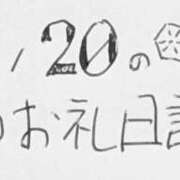 /20の
のお礼日記